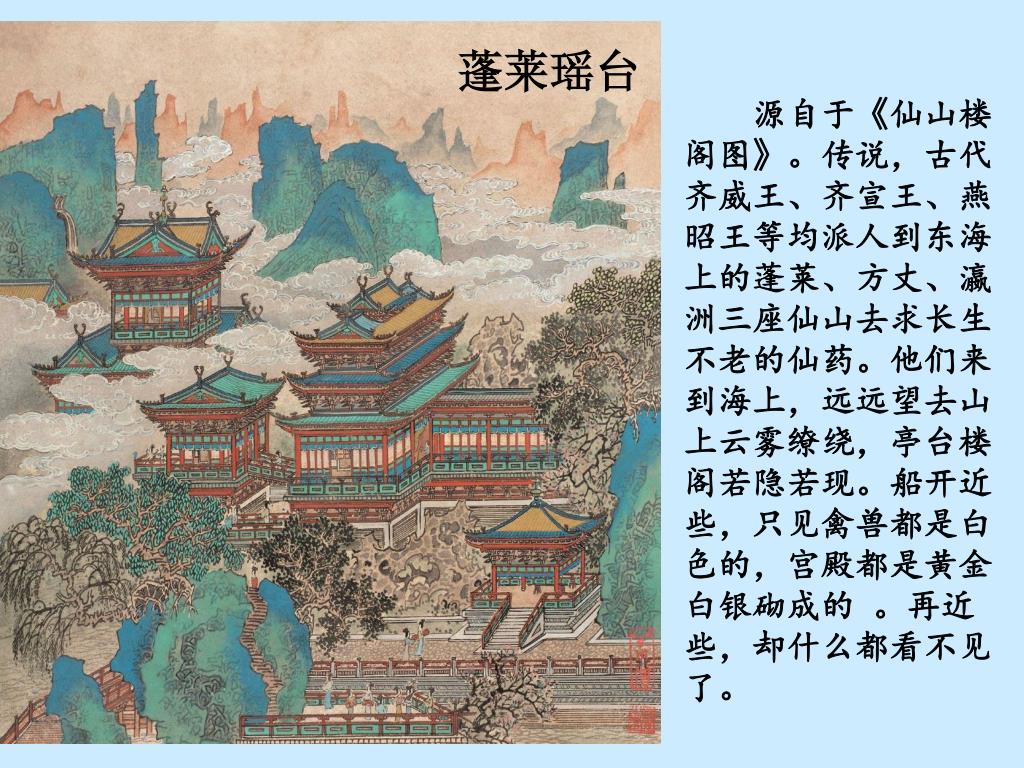 蓬莱瑶台
源自于《仙山楼
阁图》。传说，古代
齐威王、齐宣王、燕
昭王等均派人到东海
上的蓬莱、方丈、瀛
洲三座仙山去求长生
不老的仙药。他们来
到海上，远远望去山
上云雾缭绕，亭台楼
阁若隐若现。船开近
些，只见禽兽都是白
色的，宫殿都是黄金
白银砌成的 。再近
些，却什么都看不见
了。